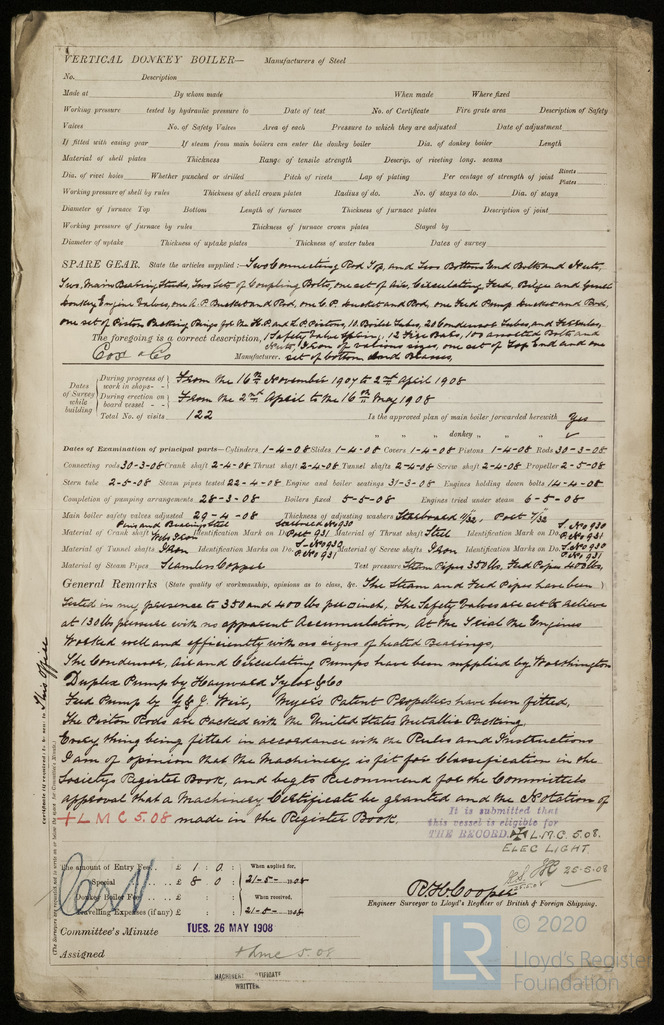 VERTICAL DONKEY BOILER— Manufacturers of Steel
No. Description
Made at By whom made When made Where fixed
Working pressure tested by hydraulic pressure to Date of test No. of Certificate Fire grate area Description of Safety
Valves No. of Safety Valves Area of each Pressure to which they are adjusted Date of adjustment
If fitted with easing gear If steam from main boilers can enter the donkey boiler Dia. of donkey boiler Length
Material of shell plates Thickness Range of tensile strength Descrip. of riveting long. seams
Dia. of rivet holes Whether punched or drilled Pitch of rivets Lap of plating Per centage of strength of joint Rivets Plates
Working pressure of shell by rules Thickness of shell crown plates Radius of do. No. of stays to do. Dia. of stays
Diameter of furnace Top Bottom Length of furnace Thickness of furnace plates Description of joint
Working pressure of furnace by rules Thickness of furnace crown plates Stayed by
Diameter of uptake Thickness of uptake plates Thickness of water tubes Dates of survey
SPARE GEAR. State the articles supplied:— Two Connecting Rod Top, and Two Bottom End Bolts and Nuts,
Two, Main Bearing Studs, Two Sets of Coupling Bolts, one set of Air, Circulating, Feed, Bilge and
Donkey Engine Valves, one A.P. Bucket and Rod, one C.P. Bucket and Rod, one Feed Pump Bucket and Rod,
one set of Piston Packing Rings for the H.P. and L.P. Pistons, 10 Boiler Tubes, 20 Condenser Tubes, and Ferrules,
The foregoing is a correct description, 1 Safety Valve Spring, 12 Fire Bars, 100 assorted Bolts and
Nuts, Iron of various sizes, one set of Top End and one
Cox & Co Manufacturer. set of bottom End Brasses,
Dates of Survey while building
During progress of work in shops- - From the 16th November 1907 to 2nd April 1908
During erection on board vessel - - From the 2nd April to the 16th May 1908
Total No. of visits 122 Is the approved plan of main boiler forwarded herewith Yes
" " " donkey " " "
Dates of Examination of principal parts—Cylinders 1-4-08 Slides 1-4-08 Covers 1-4-08 Pistons 1-4-08 Rods 30-3-08
Connecting rods 30-3-08 Crank shaft 2-4-08 Thrust shaft 2-4-08 Tunnel shafts 2-4-08 Screw shaft 2-4-08 Propeller 2-5-08
Stern tube 2-5-08 Steam pipes tested 22-4-08 Engine and boiler seatings 31-3-08 Engines holding down bolts 14-4-08
Completion of pumping arrangements 28-3-08 Boilers fixed 5-5-08 Engines tried under steam 6-5-08
Main boiler safety valves adjusted 29-4-08 Thickness of adjusting washers Starboard 11/32, Port 7/32
Material of Crank shaft Pins and Bearings Steel Webs Iron Identification Mark on Do. Starboard No 930 Port 931 Material of Thrust shaft Steel Identification Mark on Do. S. No 930 P. No 931
Material of Tunnel shafts Iron Identification Marks on Do. S. No 930 P. No 931 Material of Screw shafts Iron Identification Marks on Do. S. No 930 P. No 931
Material of Steam Pipes Seamless Copper Test pressure Steam Pipes 350 lbs, Feed Pipes 400 lbs,
General Remarks (State quality of workmanship, opinions as to class, &c. The Steam and Feed Pipes have been)
Tested in my presence to 350 and 400 lbs per sq inch, The Safety Valves are set to relieve
at 130 lbs pressure with no apparent Accumulation, At the Trial the Engines
Worked well and efficiently with no signs of heated Bearings,
The Condenser, Air and Circulating Pumps have been supplied by Worthington
Duplex Pump by Hayward Tyler & Co
Feed Pump by G & J. Weir, Meyer's Patent Propellers have been fitted,
The Piston Rods are Packed with the United States Metallic Packing
Every thing being fitted in accordance with the Rules and Instructions
I am of opinion that the Machinery is fit for Classification in the
Societys Register Book, and beg to Recommend for the Committee's
approval that a Machinery Certificate be granted and the Notation of
+LMC 5.08 made in the Register Book.
It is submitted that
this vessel is eligible for
THE RECORD. + L.M.C. 5.08.
ELEC LIGHT
25-5-08
The amount of Entry Fee . . £ 1 : 0 : When applied for,
Special £ 8 0 : 21-5-1908
Donkey Boiler Fee £ : : When received,
Travelling Expenses (if any) £ : : 21-5-1908
R H Cooper
Engineer Surveyor to Lloyd's Register of British & Foreign Shipping.
Committee's Minute TUES. 26 MAY 1908
Assigned + Lmc 5.08
MACHINERY CERTIFICATE
WRITTEN.
Certificate (if required) to be sent to This Office
(The Surveyors are requested not to write on or below the space for Committee's Minute.)
© 2020
LR
Lloyd's Register
Foundation